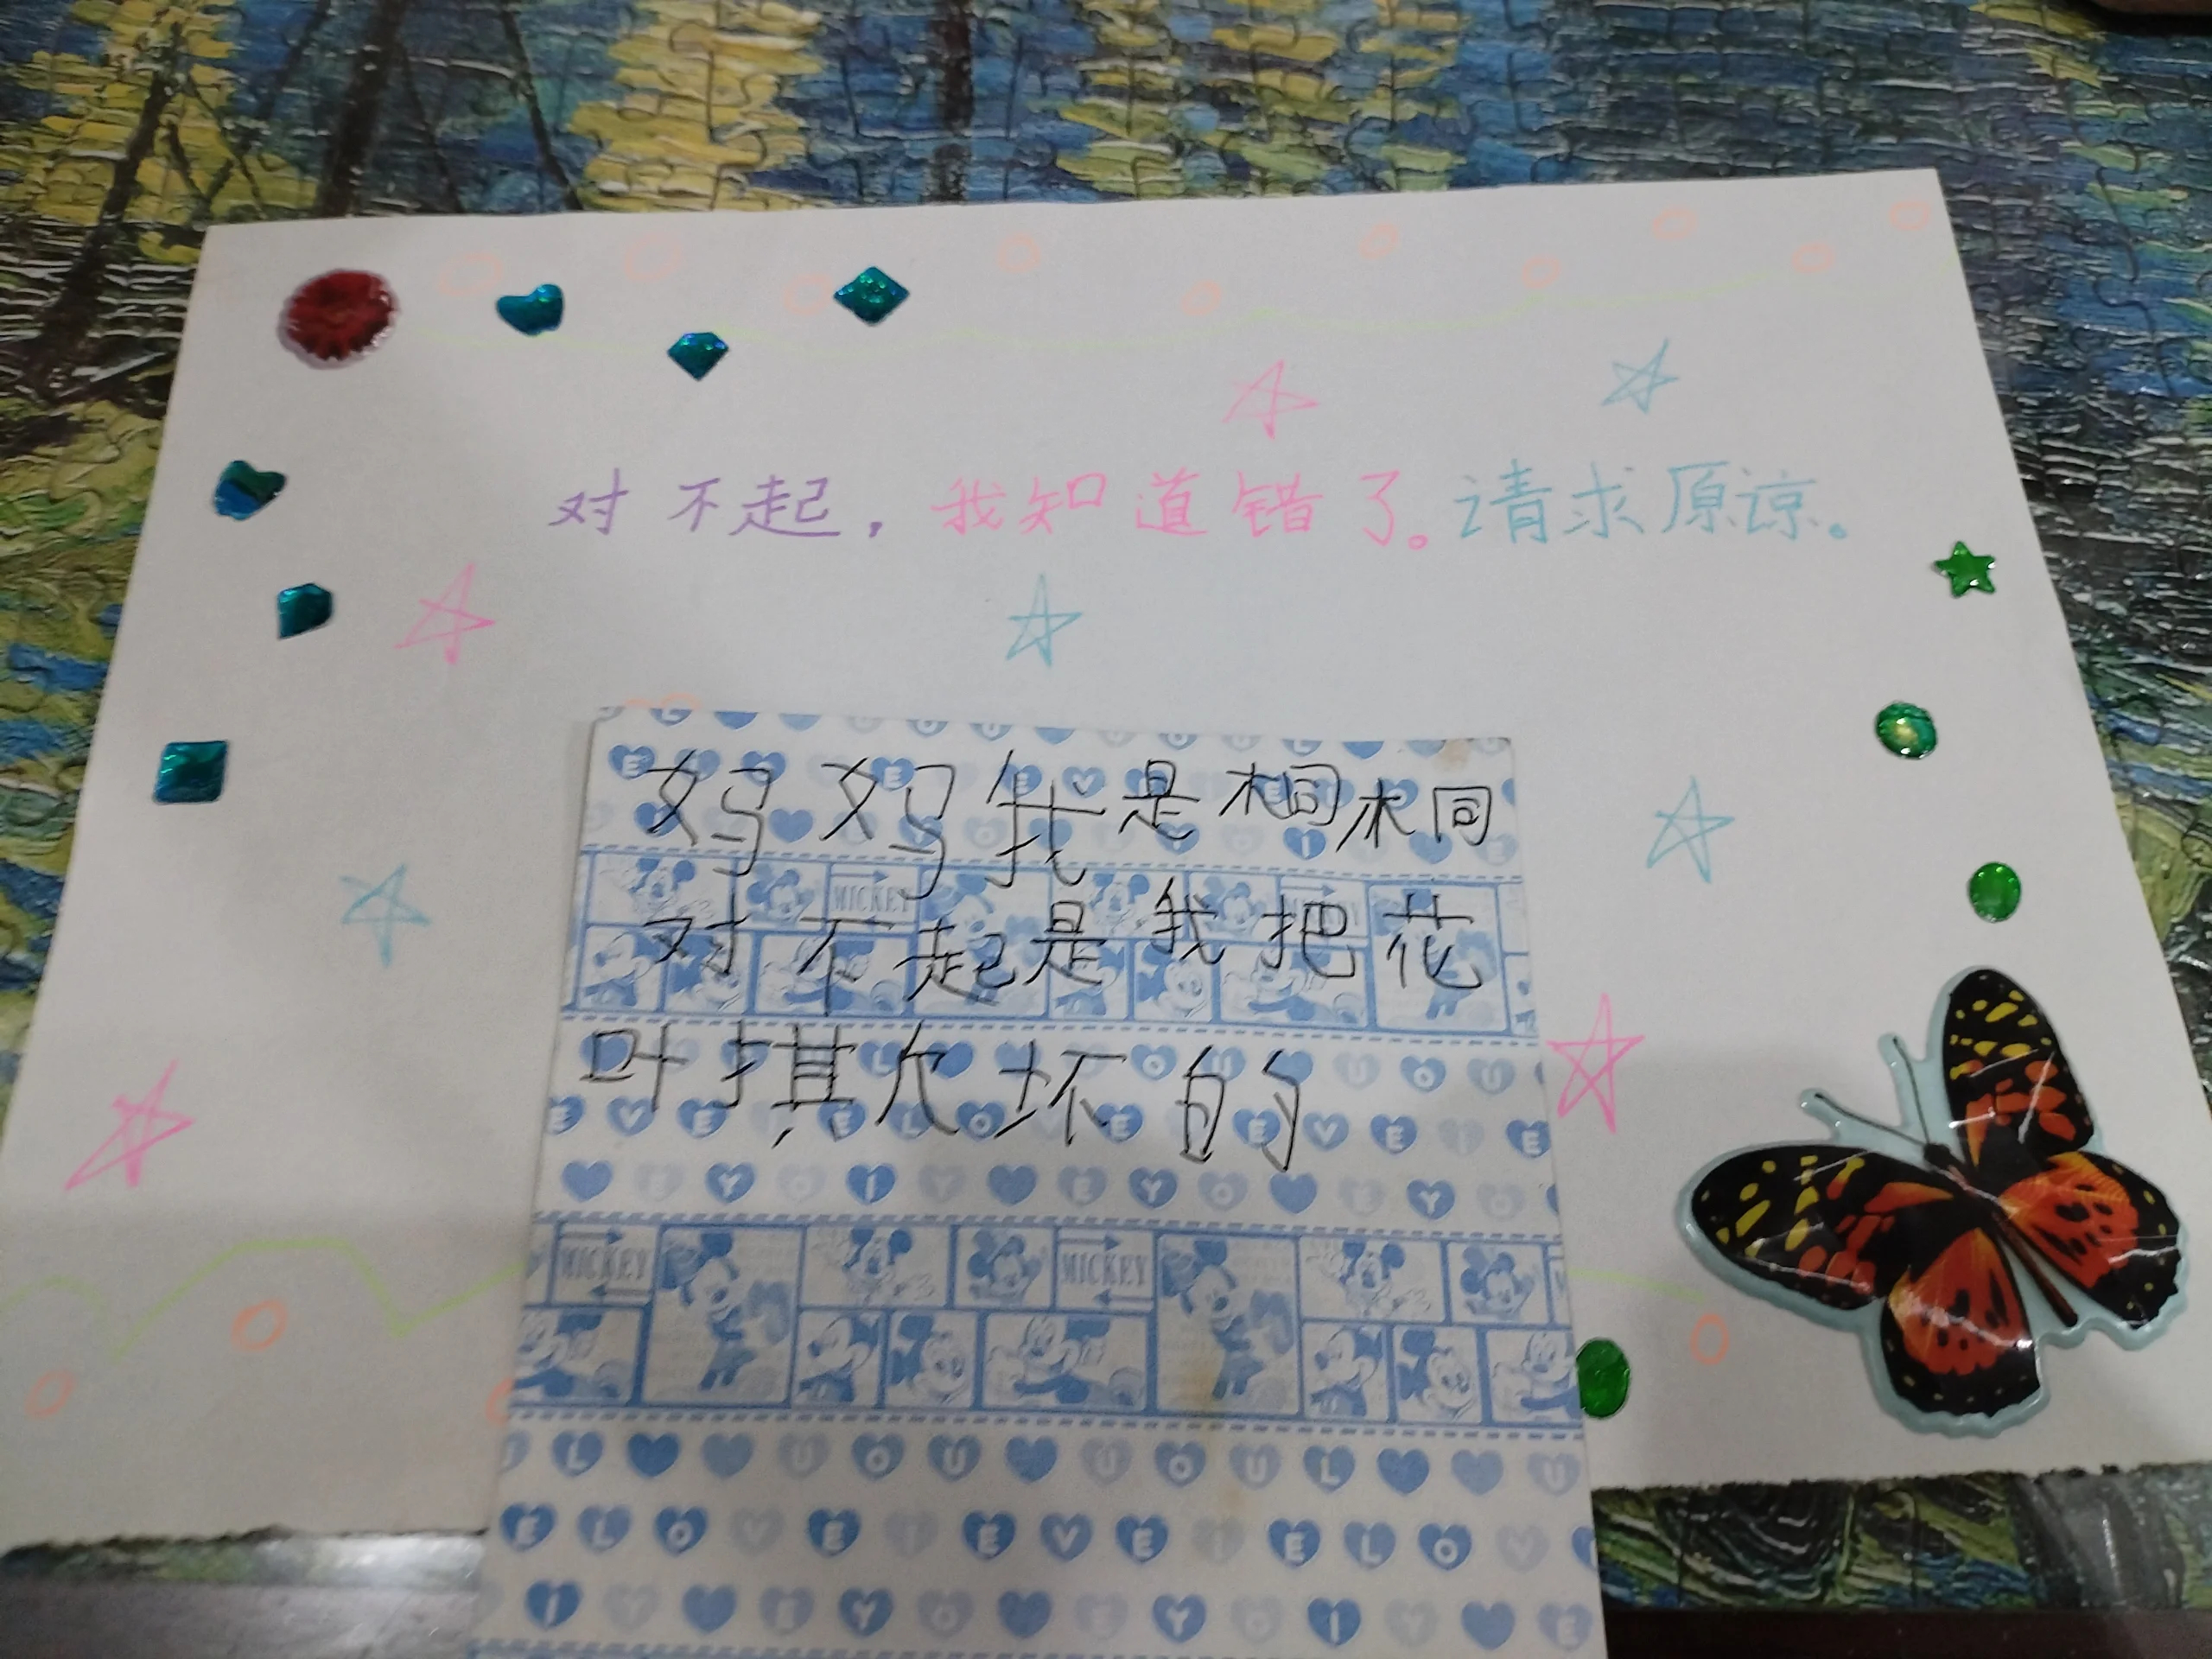 对不起，我知道错了。请求原谅。
妈妈我是桐桐
对不起是我把花
叶撕坏的
MICKEY
MICKEY MICKEY